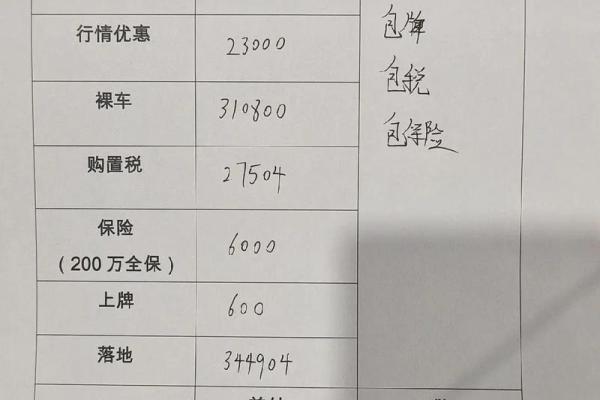 行情优惠 23000
包牌
裸车 310800
包税
包保险
购置税 27504
保险
（200 万全保） 6000
上牌 600
落地 344904